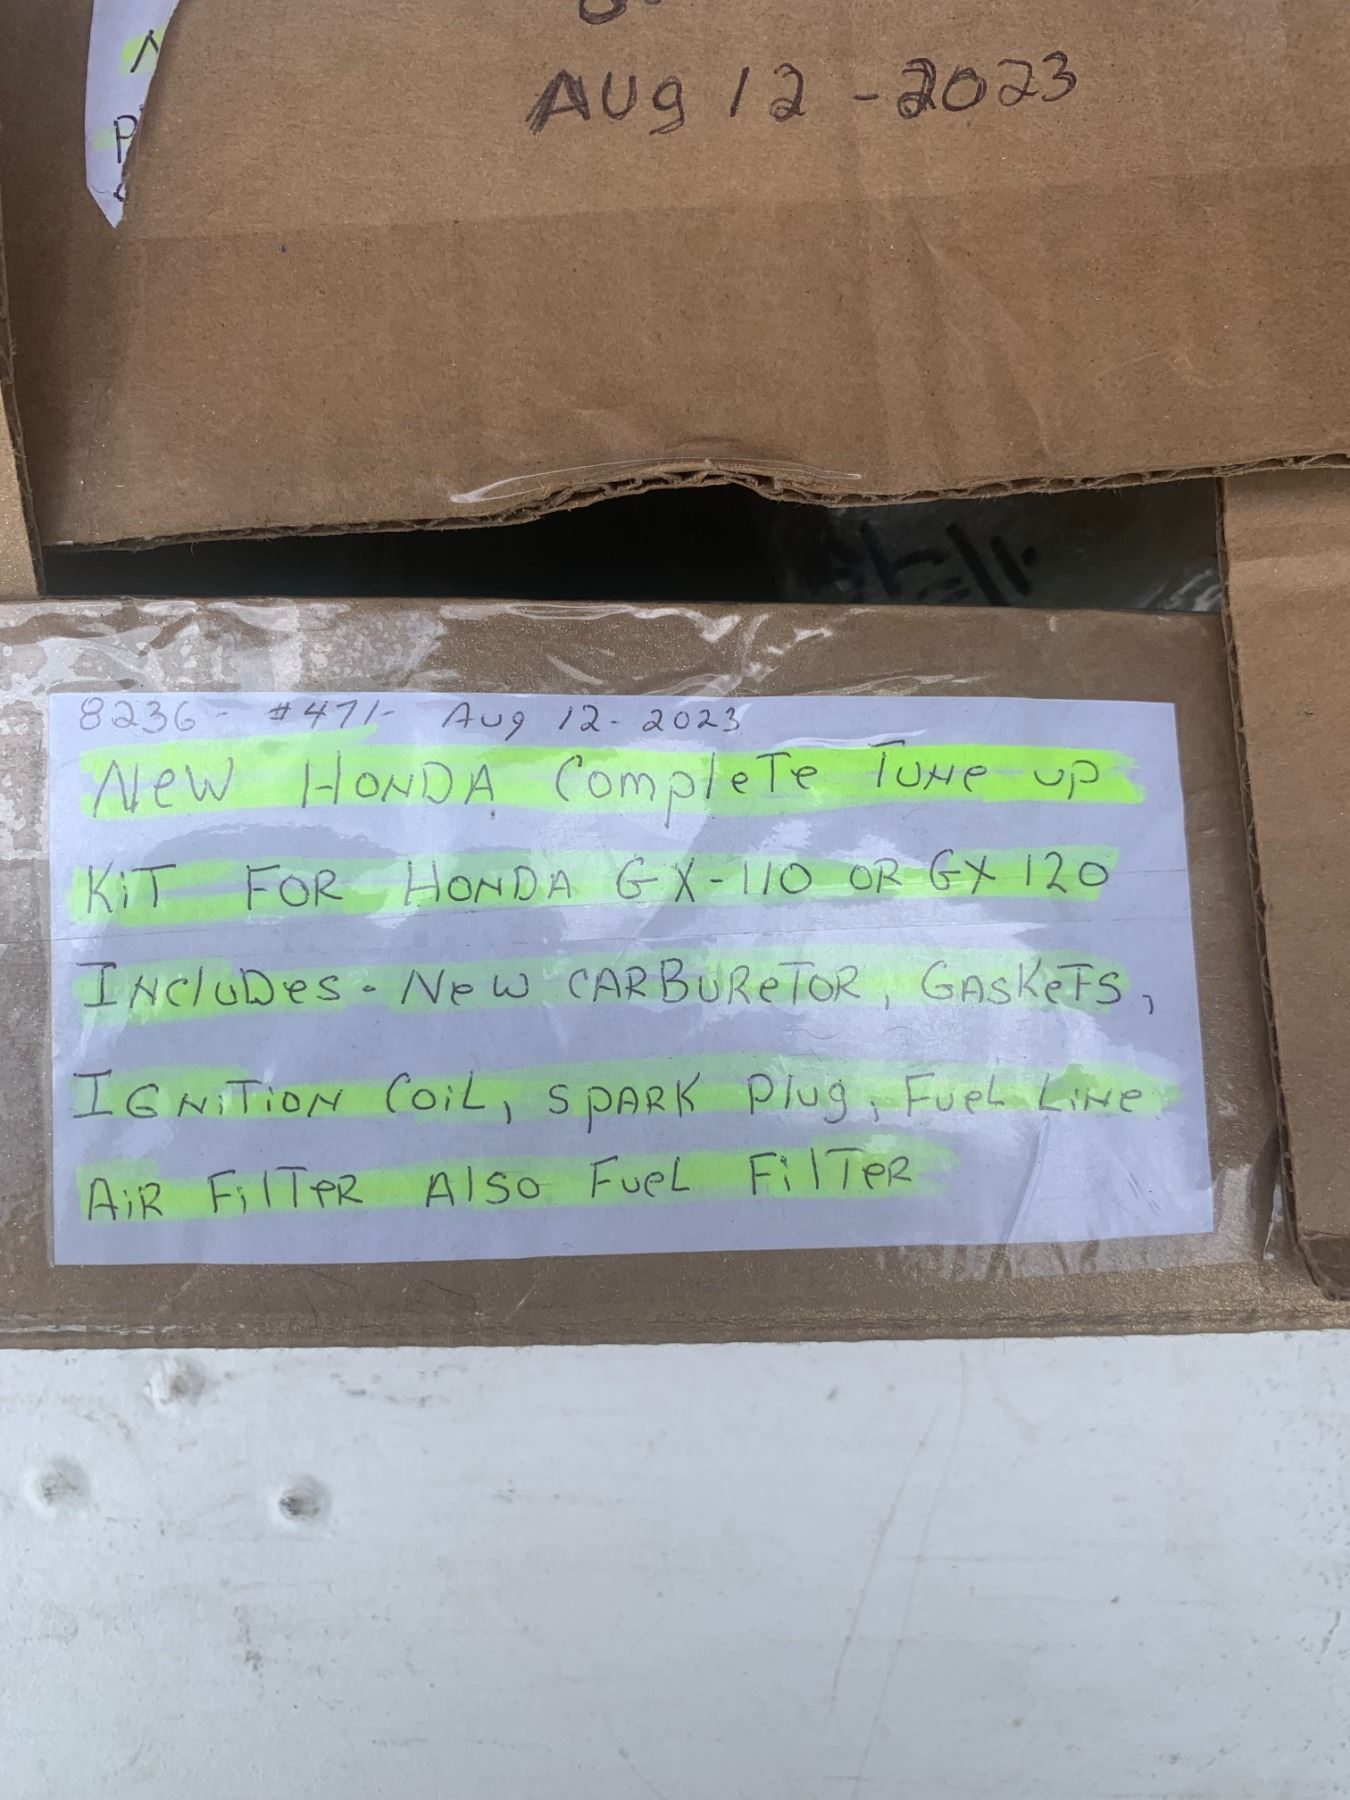 N
P
Aug 12 - 2023
8236 - #471- Aug 12 - 2023
New HONDA Complete Tune up
KiT FOR HONDA GX-110 OR GX 120
Includes - New CARBUReTOR, GASKeTS,
IGNiTiON COiL, SPARK Plug, FueL LiNe
AiR FilTeR Also FueL FilTeR